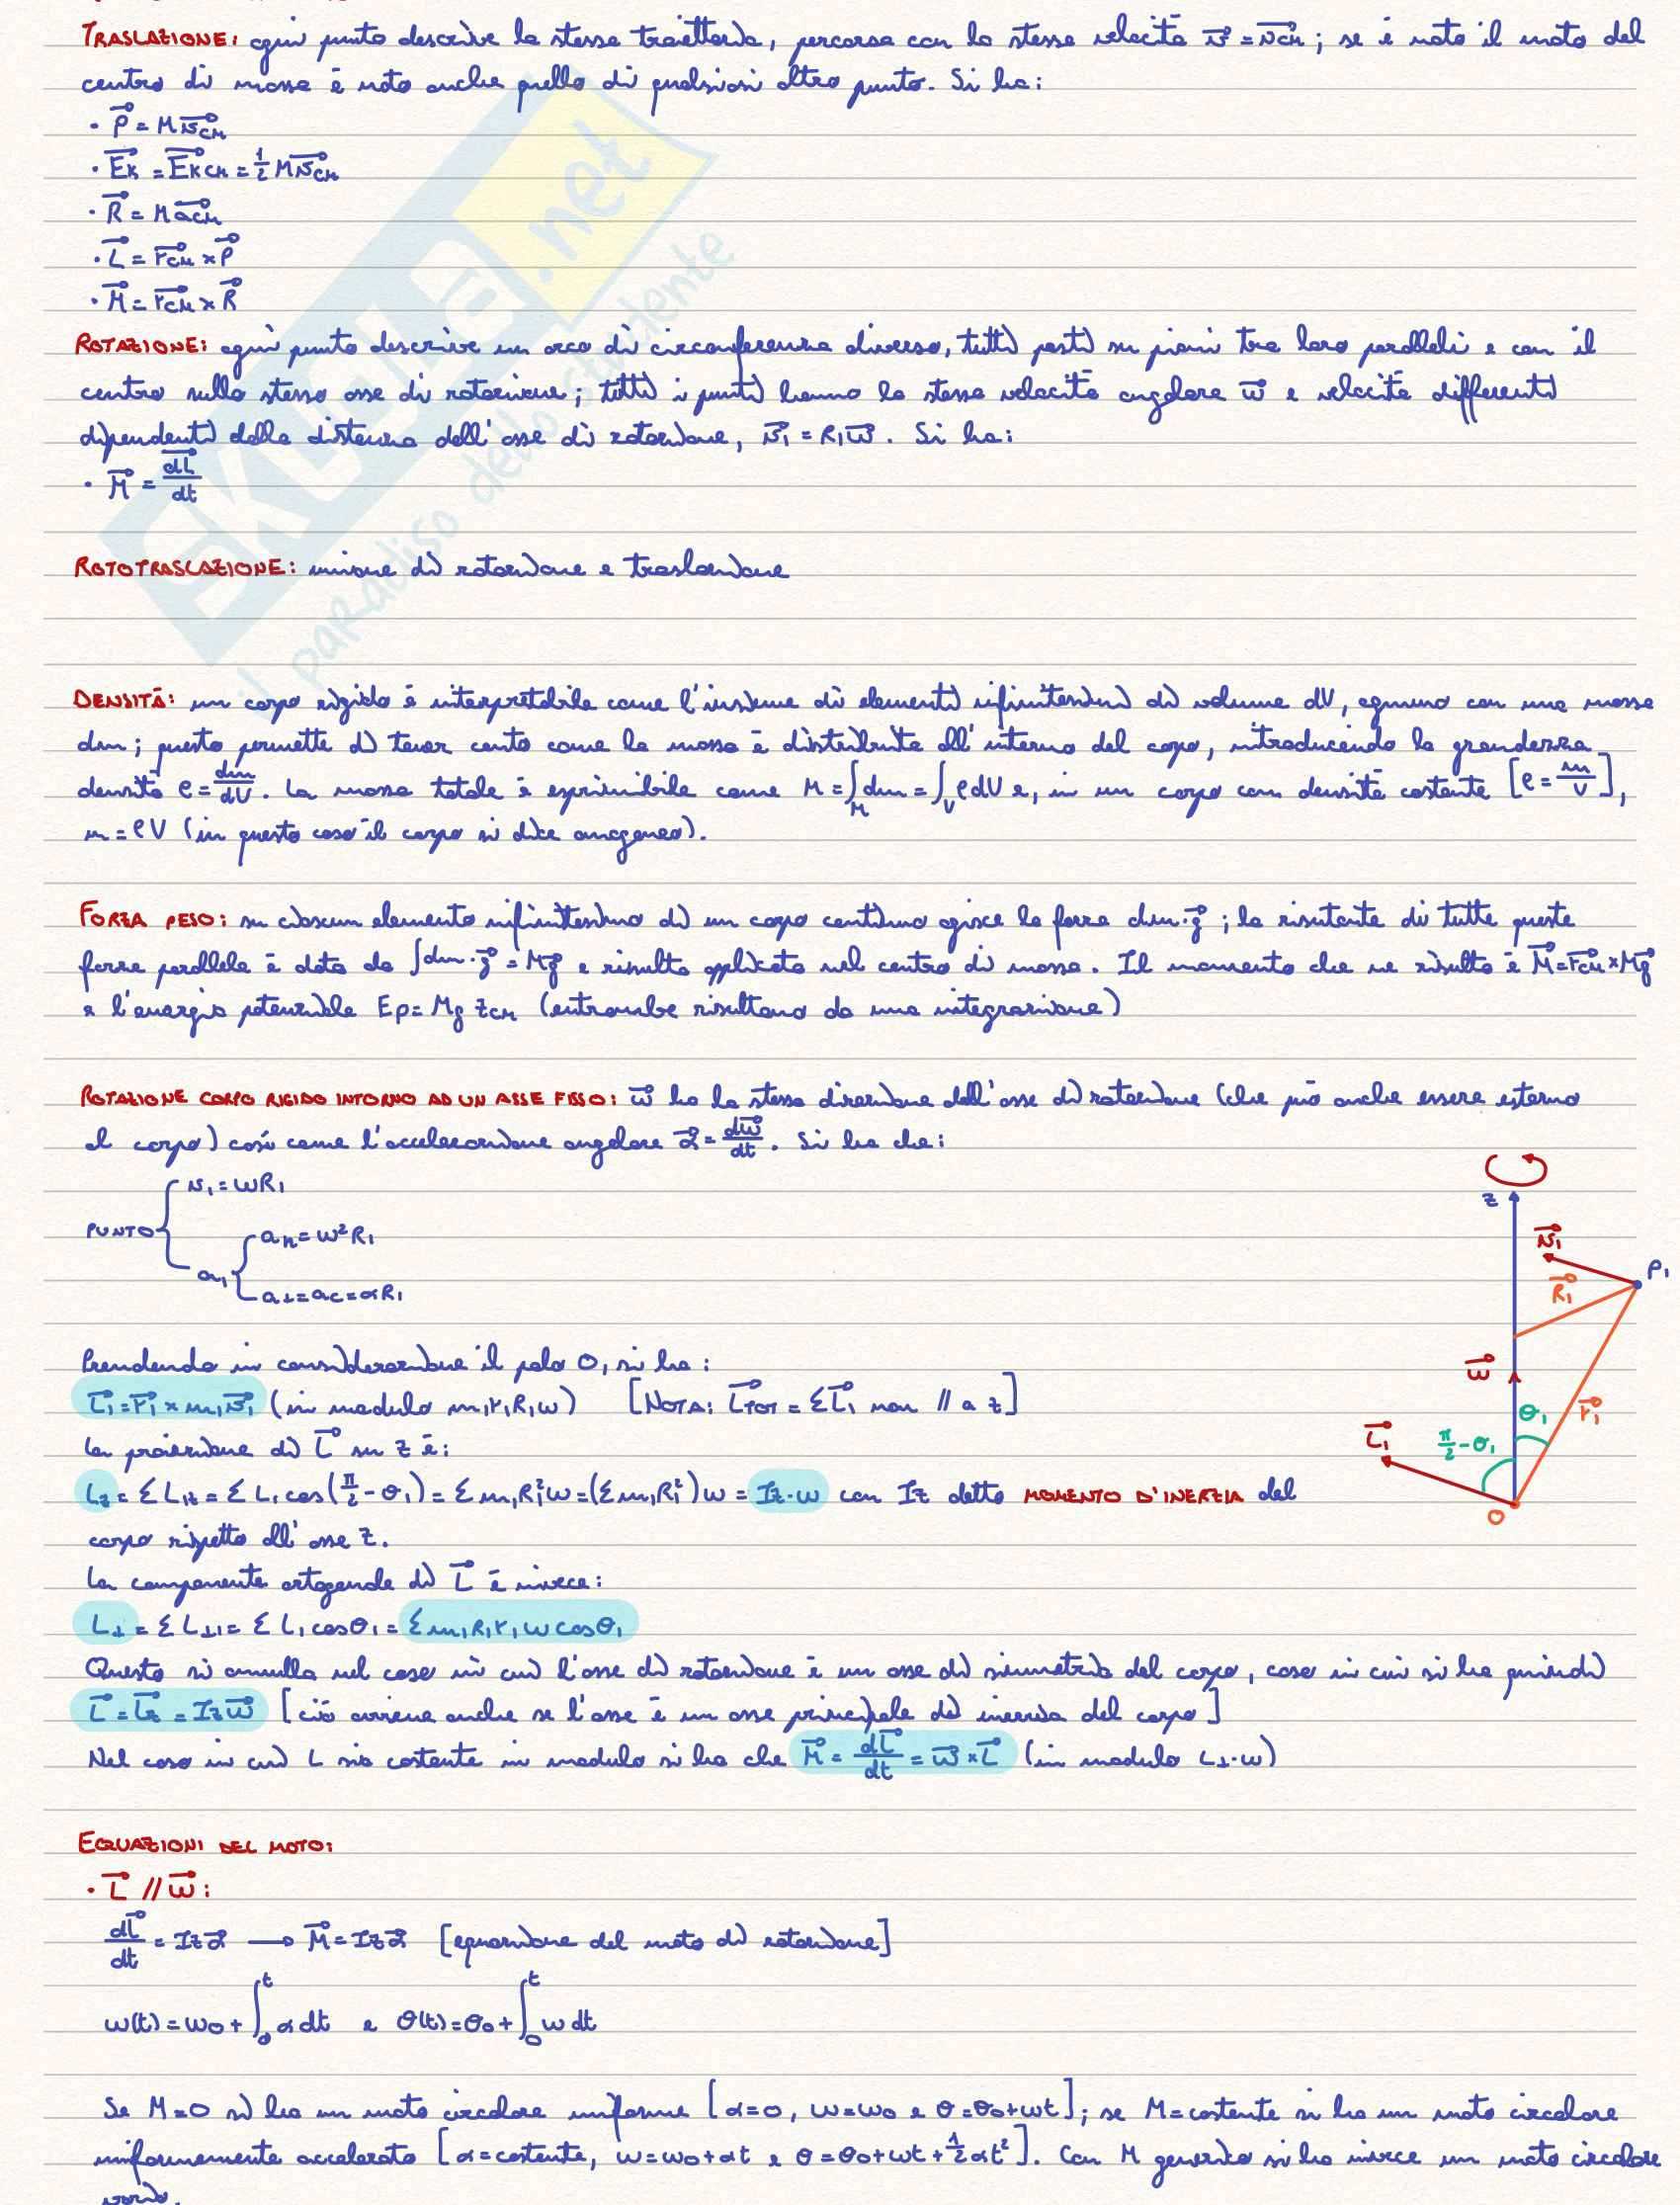 TRASLAZIONE: ogni punto descrive la stessa traiettoria, percorsa con la stessa velocità v⃗ = v⃗CM; se è noto il moto del
centro di massa è noto anche quello di qualsiasi altro punto. Si ha:
· P⃗ = M v⃗CM
· E⃗k = E⃗kCM = 1/2 M v⃗CM
· R⃗ = M a⃗CM
· L⃗ = r⃗CM × P⃗
· M⃗ = r⃗CM × R⃗
ROTAZIONE: ogni punto descrive un arco di circonferenza diverso, tutti posti su piani tra loro paralleli e con il
centro sullo stesso asse di rotazione; tutti i punti hanno la stessa velocità angolare ω⃗ e velocità differenti
dipendenti dalla distanza dall'asse di rotazione, v⃗1 = R1ω⃗. Si ha:
· M⃗ = dL⃗/dt
ROTOTRASLAZIONE: unione di rotazione e traslazione
DENSITÀ: un corpo rigido è interpretabile come l'insieme di elementi infinitesimi di volume dV, ognuno con una massa
dm; questo permette di tener conto come la massa è distribuita all'interno del corpo, introducendo la grandezza
densità ρ = dm/dV. La massa totale è esprimibile come M = ∫M dm = ∫V ρdV e, in un corpo con densità costante [ρ = m/V],
m = ρV (in questo caso il corpo si dice omogeneo).
FORZA PESO: su ciascun elemento infinitesimo di un corpo continuo agisce la forza dm·g⃗; la risultante di tutte queste
forze parallele è data da ∫dm·g⃗ = Mg⃗ e risulta applicata nel centro di massa. Il momento che ne risulta è M⃗ = r⃗CM × Mg⃗
e l'energia potenziale Ep = Mg zCM (entrambe risultano da una integrazione)
ROTAZIONE CORPO RIGIDO INTORNO AD UN ASSE FISSO: ω⃗ ha la stessa direzione dell'asse di rotazione (che può anche essere esterno
al corpo) così come l'accelerazione angolare α⃗ = dω⃗/dt. Si ha che:
PUNTO { v1 = ωR1
a1 { an = ω²R1
a⊥ = ac = αR1
z
v⃗1
P1
R⃗1
ω⃗
θ1
r⃗1
π/2 - θ1
L⃗1
O
Prendendo in considerazione il polo O, si ha:
L⃗1 = r⃗1 × m1v⃗1 (in modulo m1r1R1ω) [NOTA: L⃗TOT = ΣL⃗1 non // a z]
La proiezione di L⃗ su z è:
Lz = ΣL1z = ΣL1cos(π/2 - θ1) = Σm1R1²ω = (Σm1R1²)ω = Iz·ω con Iz detto MOMENTO D'INERZIA del
corpo rispetto all'asse z.
La componente ortogonale di L⃗ è invece:
L⊥ = ΣL⊥1 = ΣL1cosθ1 = Σm1R1r1ωcosθ1
Questo si annulla nel caso in cui l'asse di rotazione è un asse di simmetria del corpo, caso in cui si ha quindi
L⃗ = L⃗z = Izω⃗ [ciò avviene anche se l'asse è un asse principale di inerzia del corpo]
Nel caso in cui L sia costante in modulo si ha che M⃗ = dL⃗/dt = ω⃗ × L⃗ (in modulo L⊥·ω)
EQUAZIONI DEL MOTO:
· L⃗ // ω⃗:
dL⃗/dt = Izα⃗ → M⃗ = Izα⃗ [equazione del moto di rotazione]
ω(t) = ω0 + ∫0t α dt e θ(t) = θ0 + ∫0t ω dt
Se M=0 si ha un moto circolare uniforme [α=0, ω=ω0 e θ=θ0+ωt]; se M=costante si ha un moto circolare
uniformemente accelerato [α=costante, ω=ω0+αt e θ=θ0+ωt+1/2αt²]. Con M generico si ha invece un moto circolare
vario.
SKUOLA.net
il paradiso dello studente